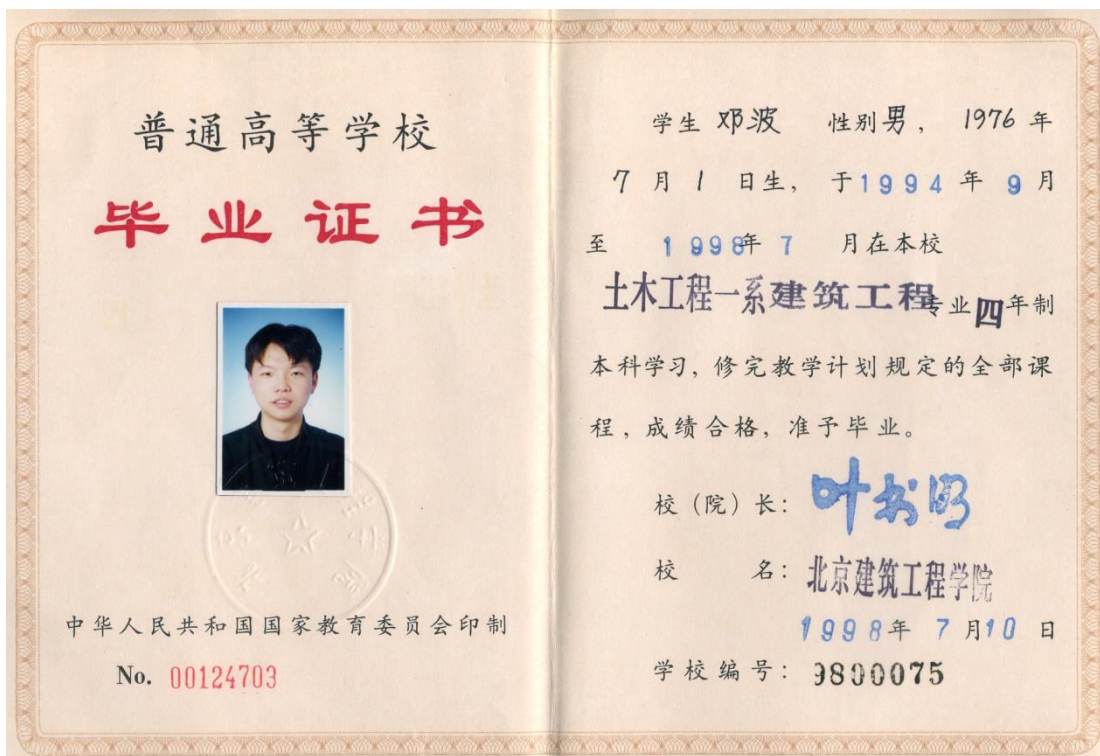 普通高等学校
毕业证书
中华人民共和国国家教育委员会印制
No. 00124703
学生 邓波 性别男, 1976 年
7 月 1 日生, 于1994 年 9 月
至 1998年 7 月在本校
土木工程一系建筑工程专业四年制
本科学习, 修完教学计划规定的全部课
程, 成绩合格, 准予毕业。
校(院)长: 叶书明
校 名: 北京建筑工程学院
1998年 7 月10 日
学校编号: 9800075